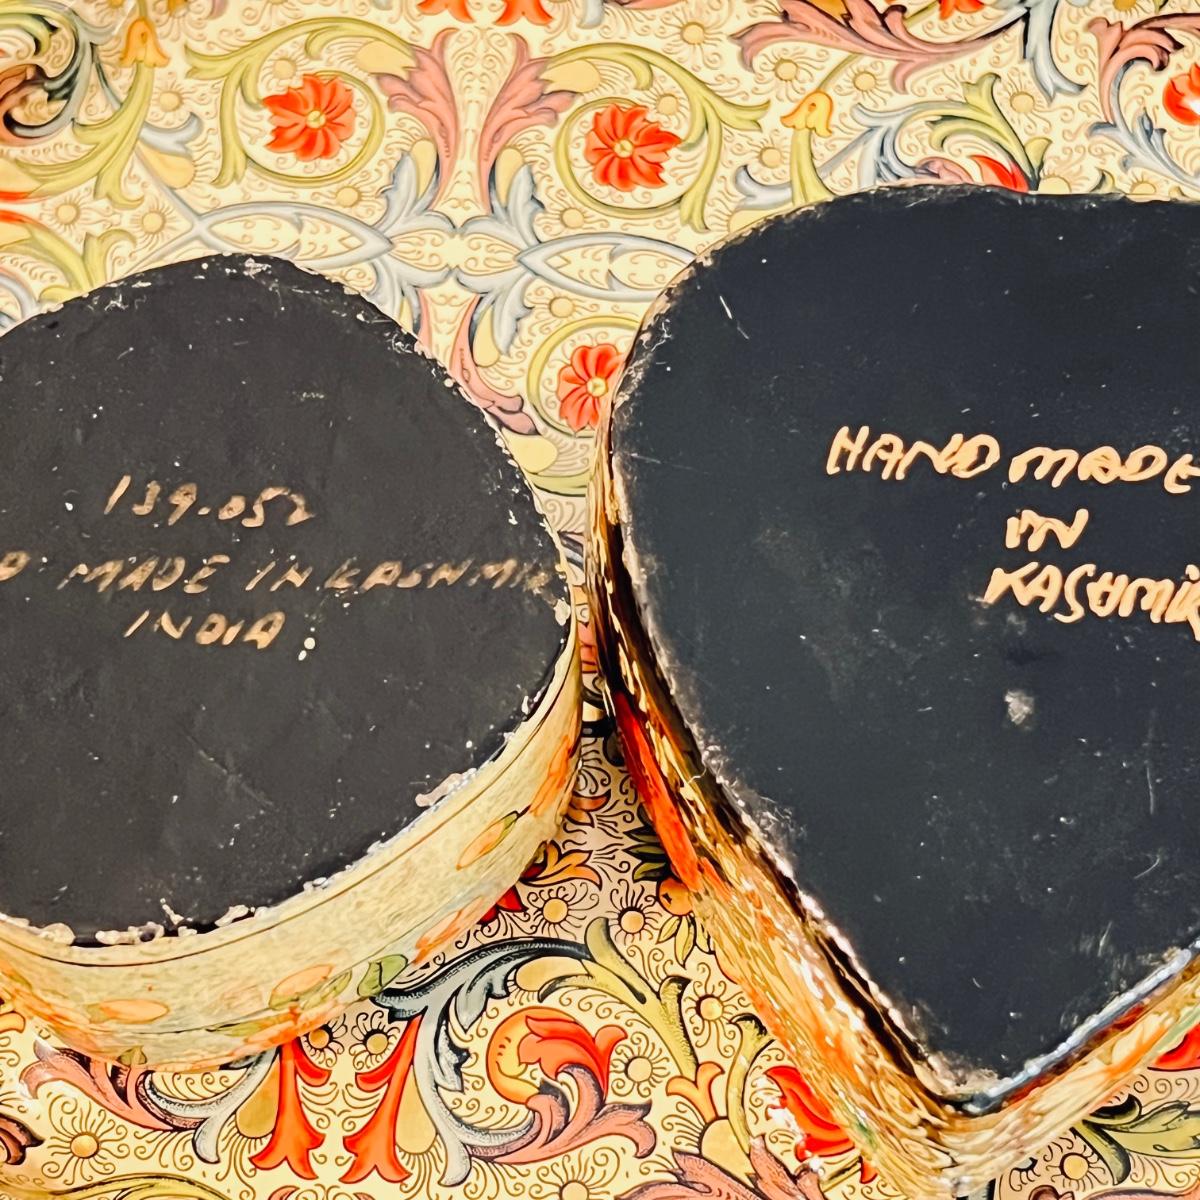 139.052
D MADE IN KASHMIR
INDIA
HAND MADE
IN
KASHMIR